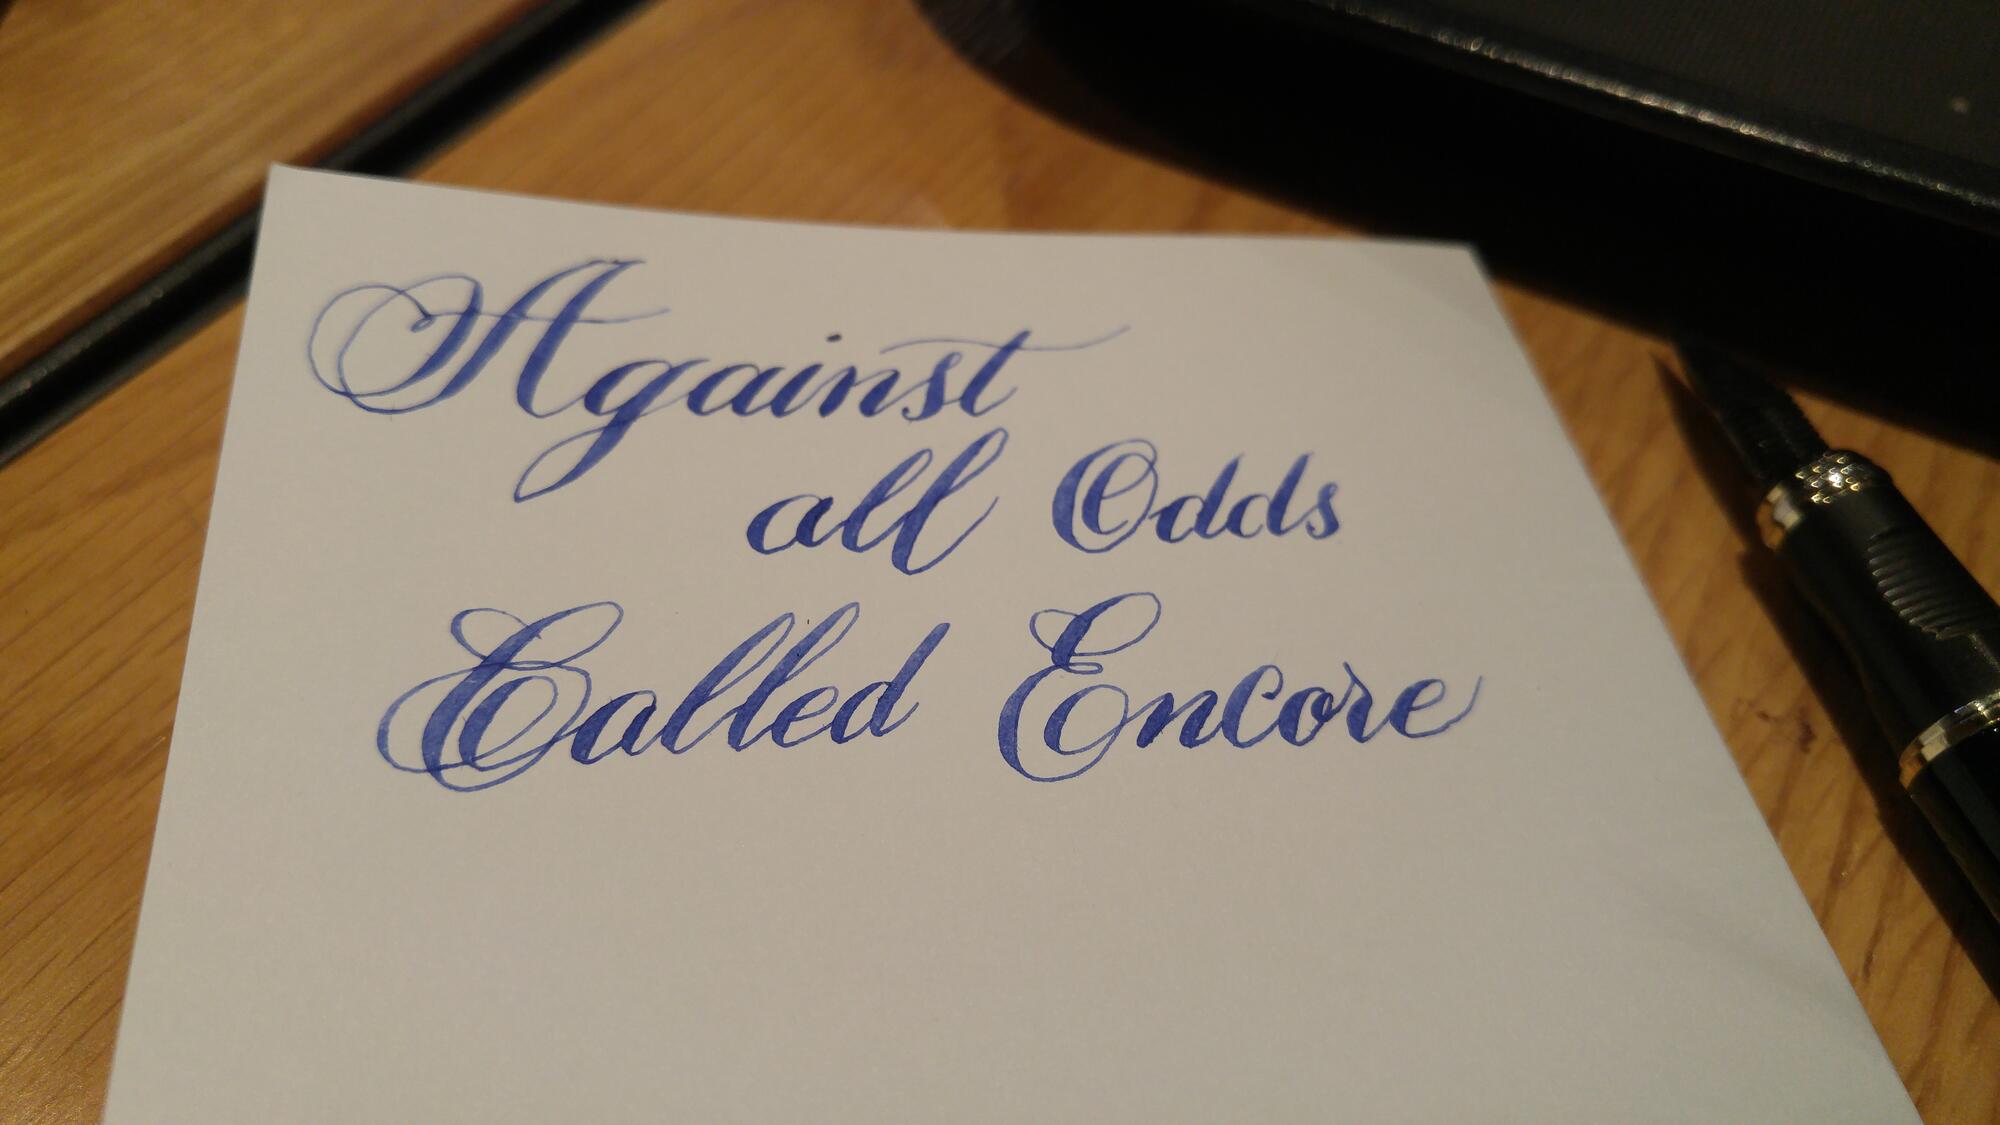 Against
all Odds
Called Encore